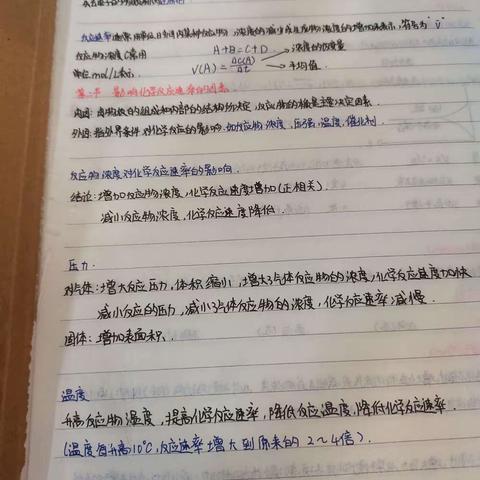 反应速率通常用单位时间内某种反应物浓度的减少或生成物浓度的增加来表示，符号为"v"
反应物浓度常用 A+B=C+D 浓度的改变量
单位mol/L表示. V(A)=ΔC(A)/Δt 平均值.
第二节 影响化学反应速率的因素
内因：由物质的组成和内部的结构所决定，反应物的本性是主要决定因素.
外因：指外界条件对化学反应的影响，如反应物浓度，压强，温度，催化剂.
反应物浓度对化学反应速率的影响.
结论：增加反应物浓度，化学反应速度增加（正相关）.
减小反应物浓度，化学反应速度降低.
压力.
对气体：增大反应压力，体积缩小，增大气体反应物的浓度，化学反应速度加快
减小反应的压力，减小气体反应物的浓度，化学反应速率减慢.
固体：增加表面积、.
温度
升高反应物温度，提高化学反应速率，降低反应温度，降低化学反应速率.
（温度每升高10℃，反应速率增大到原来的2～4倍）.